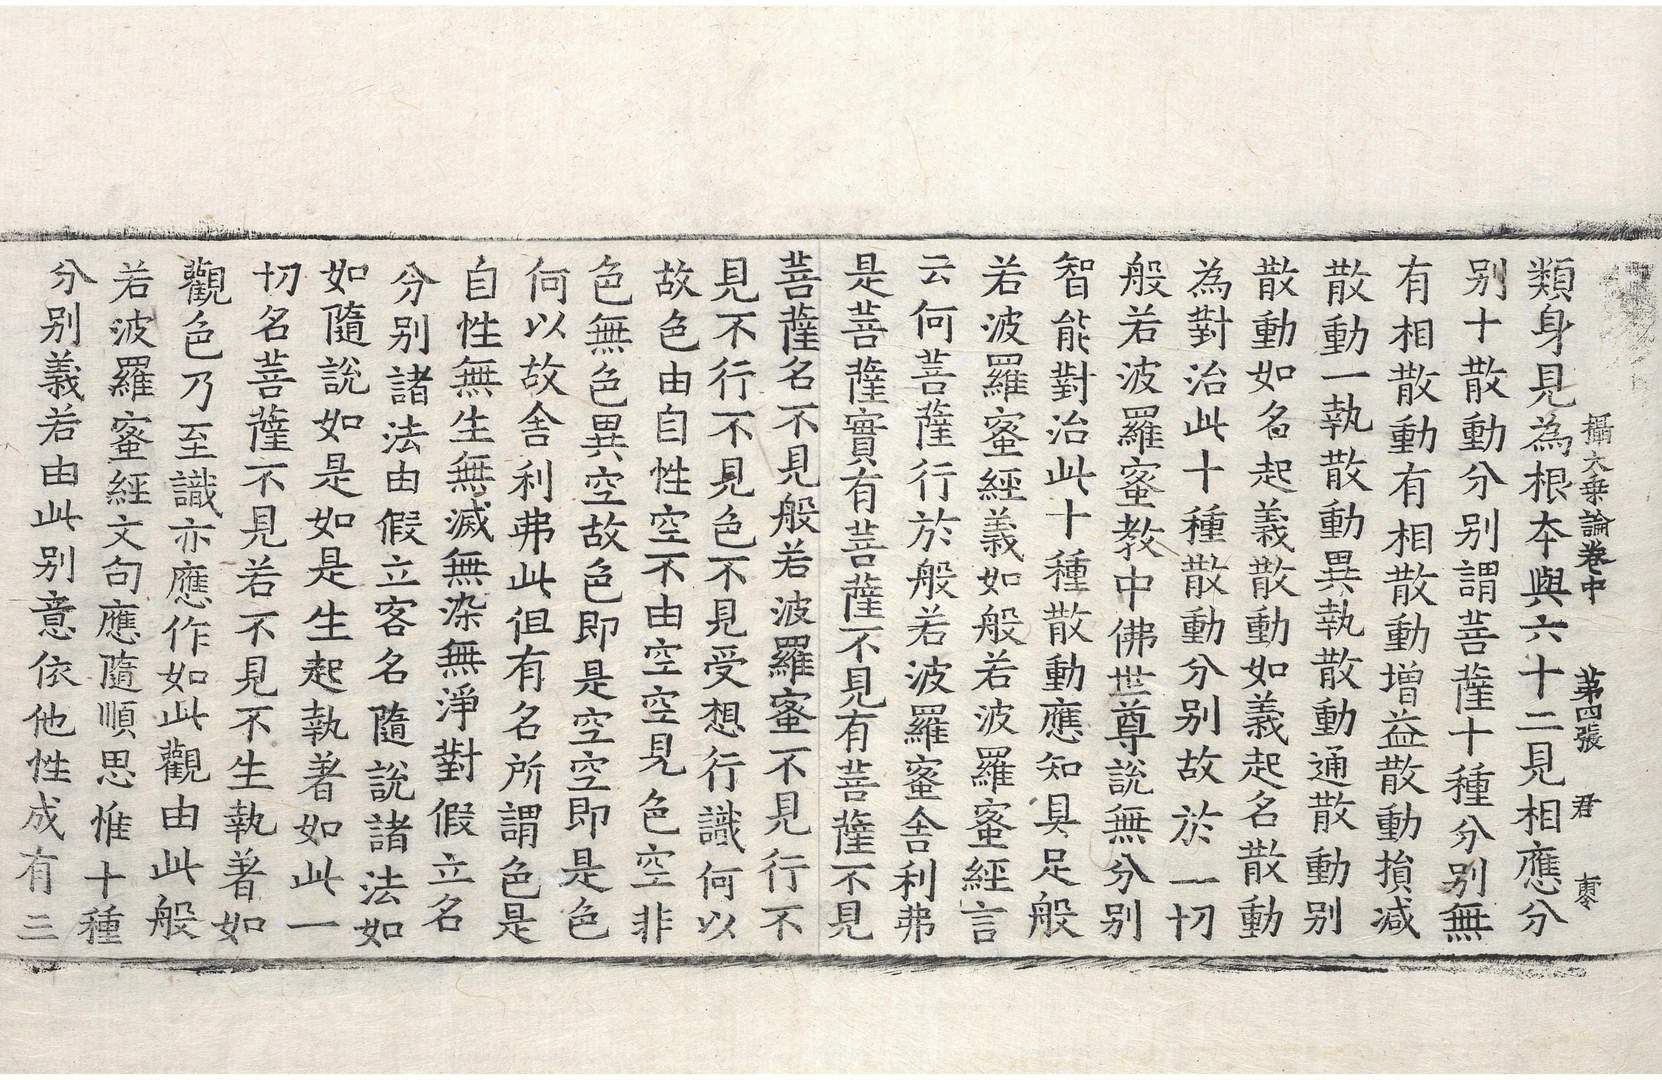 攝大乗論卷中　第四張　君　廖
類身見為根本與六十二見相應分
别十散動分别謂菩薩十種分别無
有相散動有相散動增益散動損减
散動一執散動異執散動通散動别
散動如名起義散動如義起名散動
為對治此十種散動分别故於一切
般若波羅蜜教中佛世尊說無分别
智能對治此十種散動應知具足般
若波羅蜜經義如般若波羅蜜經言
云何菩薩行於般若波羅蜜舍利弗
是菩薩實有菩薩不見有菩薩不見
菩薩名不見般若波羅蜜不見行不
見不行不見色不見受想行識何以
故色由自性空不由空空見色空非
色無色異空故色即是空空即是色
何以故舍利弗此但有名所謂色是
自性無生無滅無染無淨對假立名
分别諸法由假立客名隨說諸法如
如隨說如是如是生起執著如此一
切名菩薩不見若不見不生執著如
觀色乃至識亦應作如此觀由此般
若波羅蜜經文句應隨順思惟十種
分别義若由此别意依他性成有三